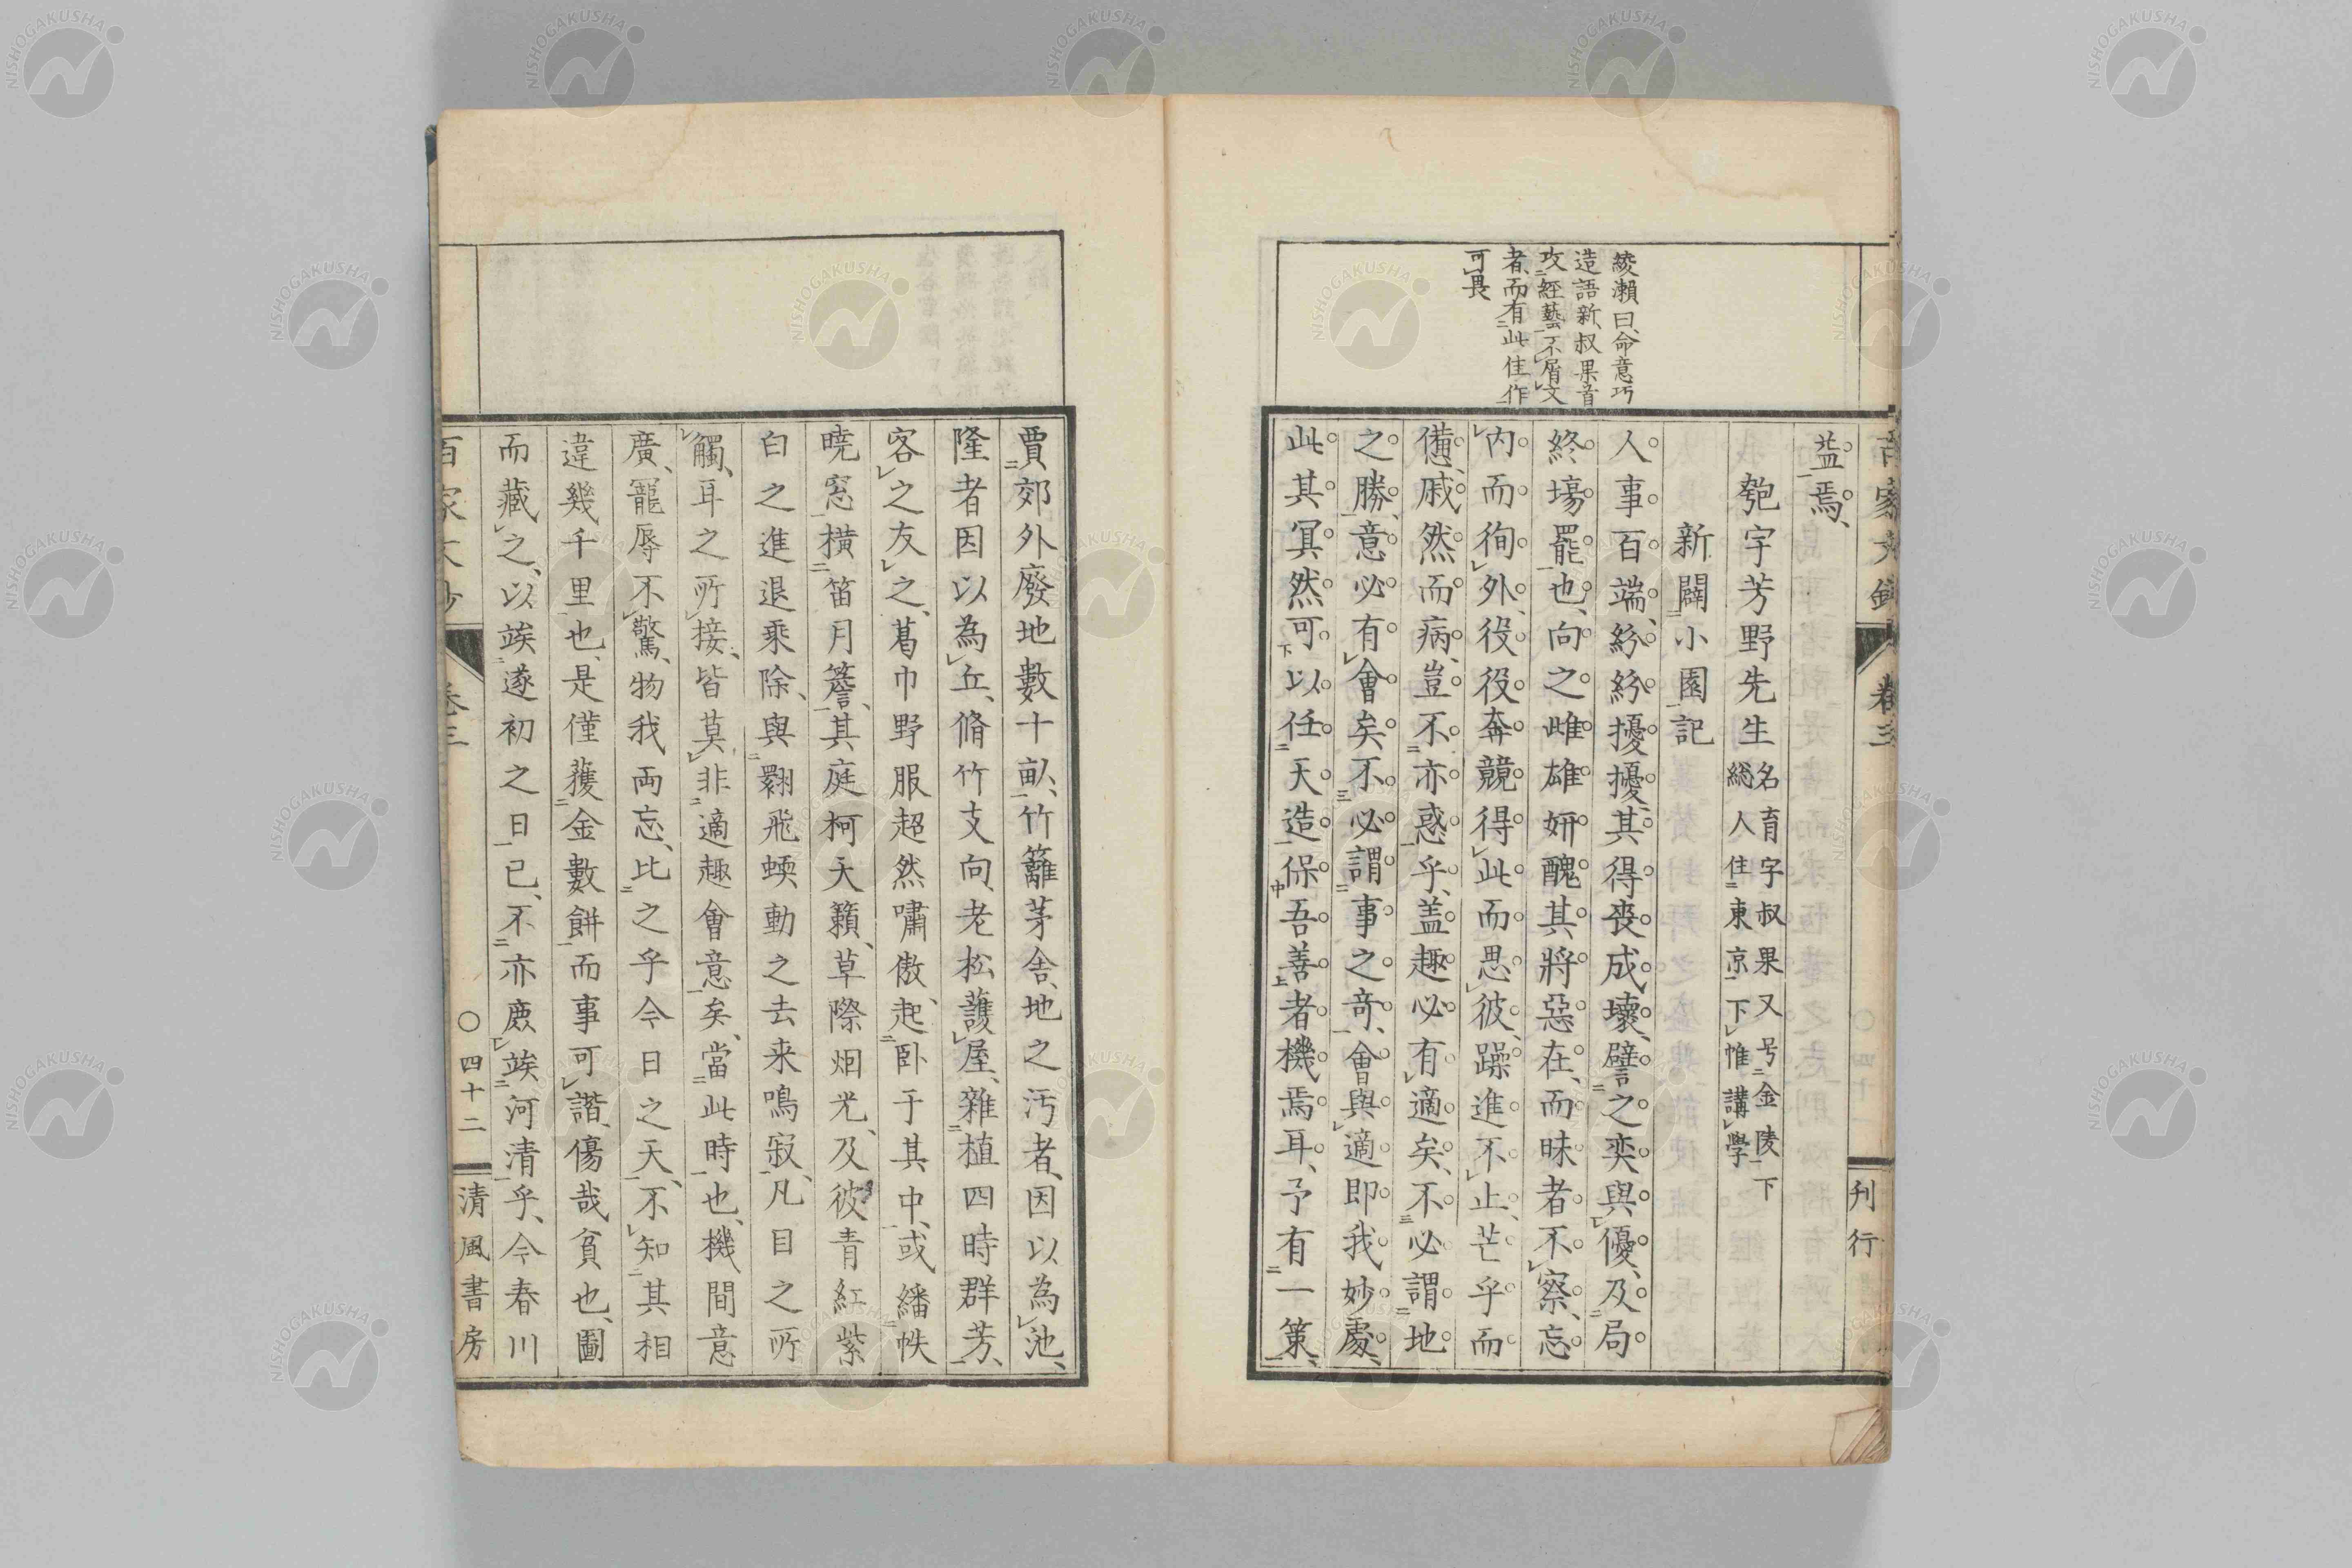 綾瀨曰、命意巧
造語新、叔果音
攻經藝、不屑文
者、而有此佳作
可畏
百家文鈔 卷三
刊行
益焉、
匏宇芳野先生 名育字叔果又号金陵下
総人住東京下惟講學
新闢小園記
人事百端、紛紛擾擾、其得喪成壞、譬之奕與優、及局
終場罷也、向之雌雄妍醜其將惡在、而昧者不察、忘
內而徇外、役役奔競、得此而思彼、躁進不止、芒乎而
憊、戚然而病、豈不亦惑乎、盖趣必有適矣、不必謂地
之勝、意必有會矣、不必謂事之奇、會與適即我妙處、
此其冥然可以任天造保吾善者機焉耳、予有一策、
賈郊外廢地數十畝、竹籬茅舍、地之汚者、因以為池、
隆者因以為丘、脩竹支向、老松護屋、雜植四時群芳、
客之友之、葛巾野服超然嘯傲、起臥于其中、或繙帙
曉窓、橫笛月簷、其庭柯天籟、草際烟光、及彼青紅紫
白之進退乘除、與翾飛蝡動之去来鳴寂、凡目之所
觸、耳之所接、皆莫非適趣會意矣、當此時也、機間意
廣、寵辱不驚、物我両忘、比之乎今日之天、不知其相
違幾千里也、是僅獲金數餅而事可諧、傷哉貧也、圖
而藏之、以竢遂初之日已、不亦廘竢河清乎、今春川
百家文鈔 卷三 〇四十二 清風書房
NISHOGAKUSHA